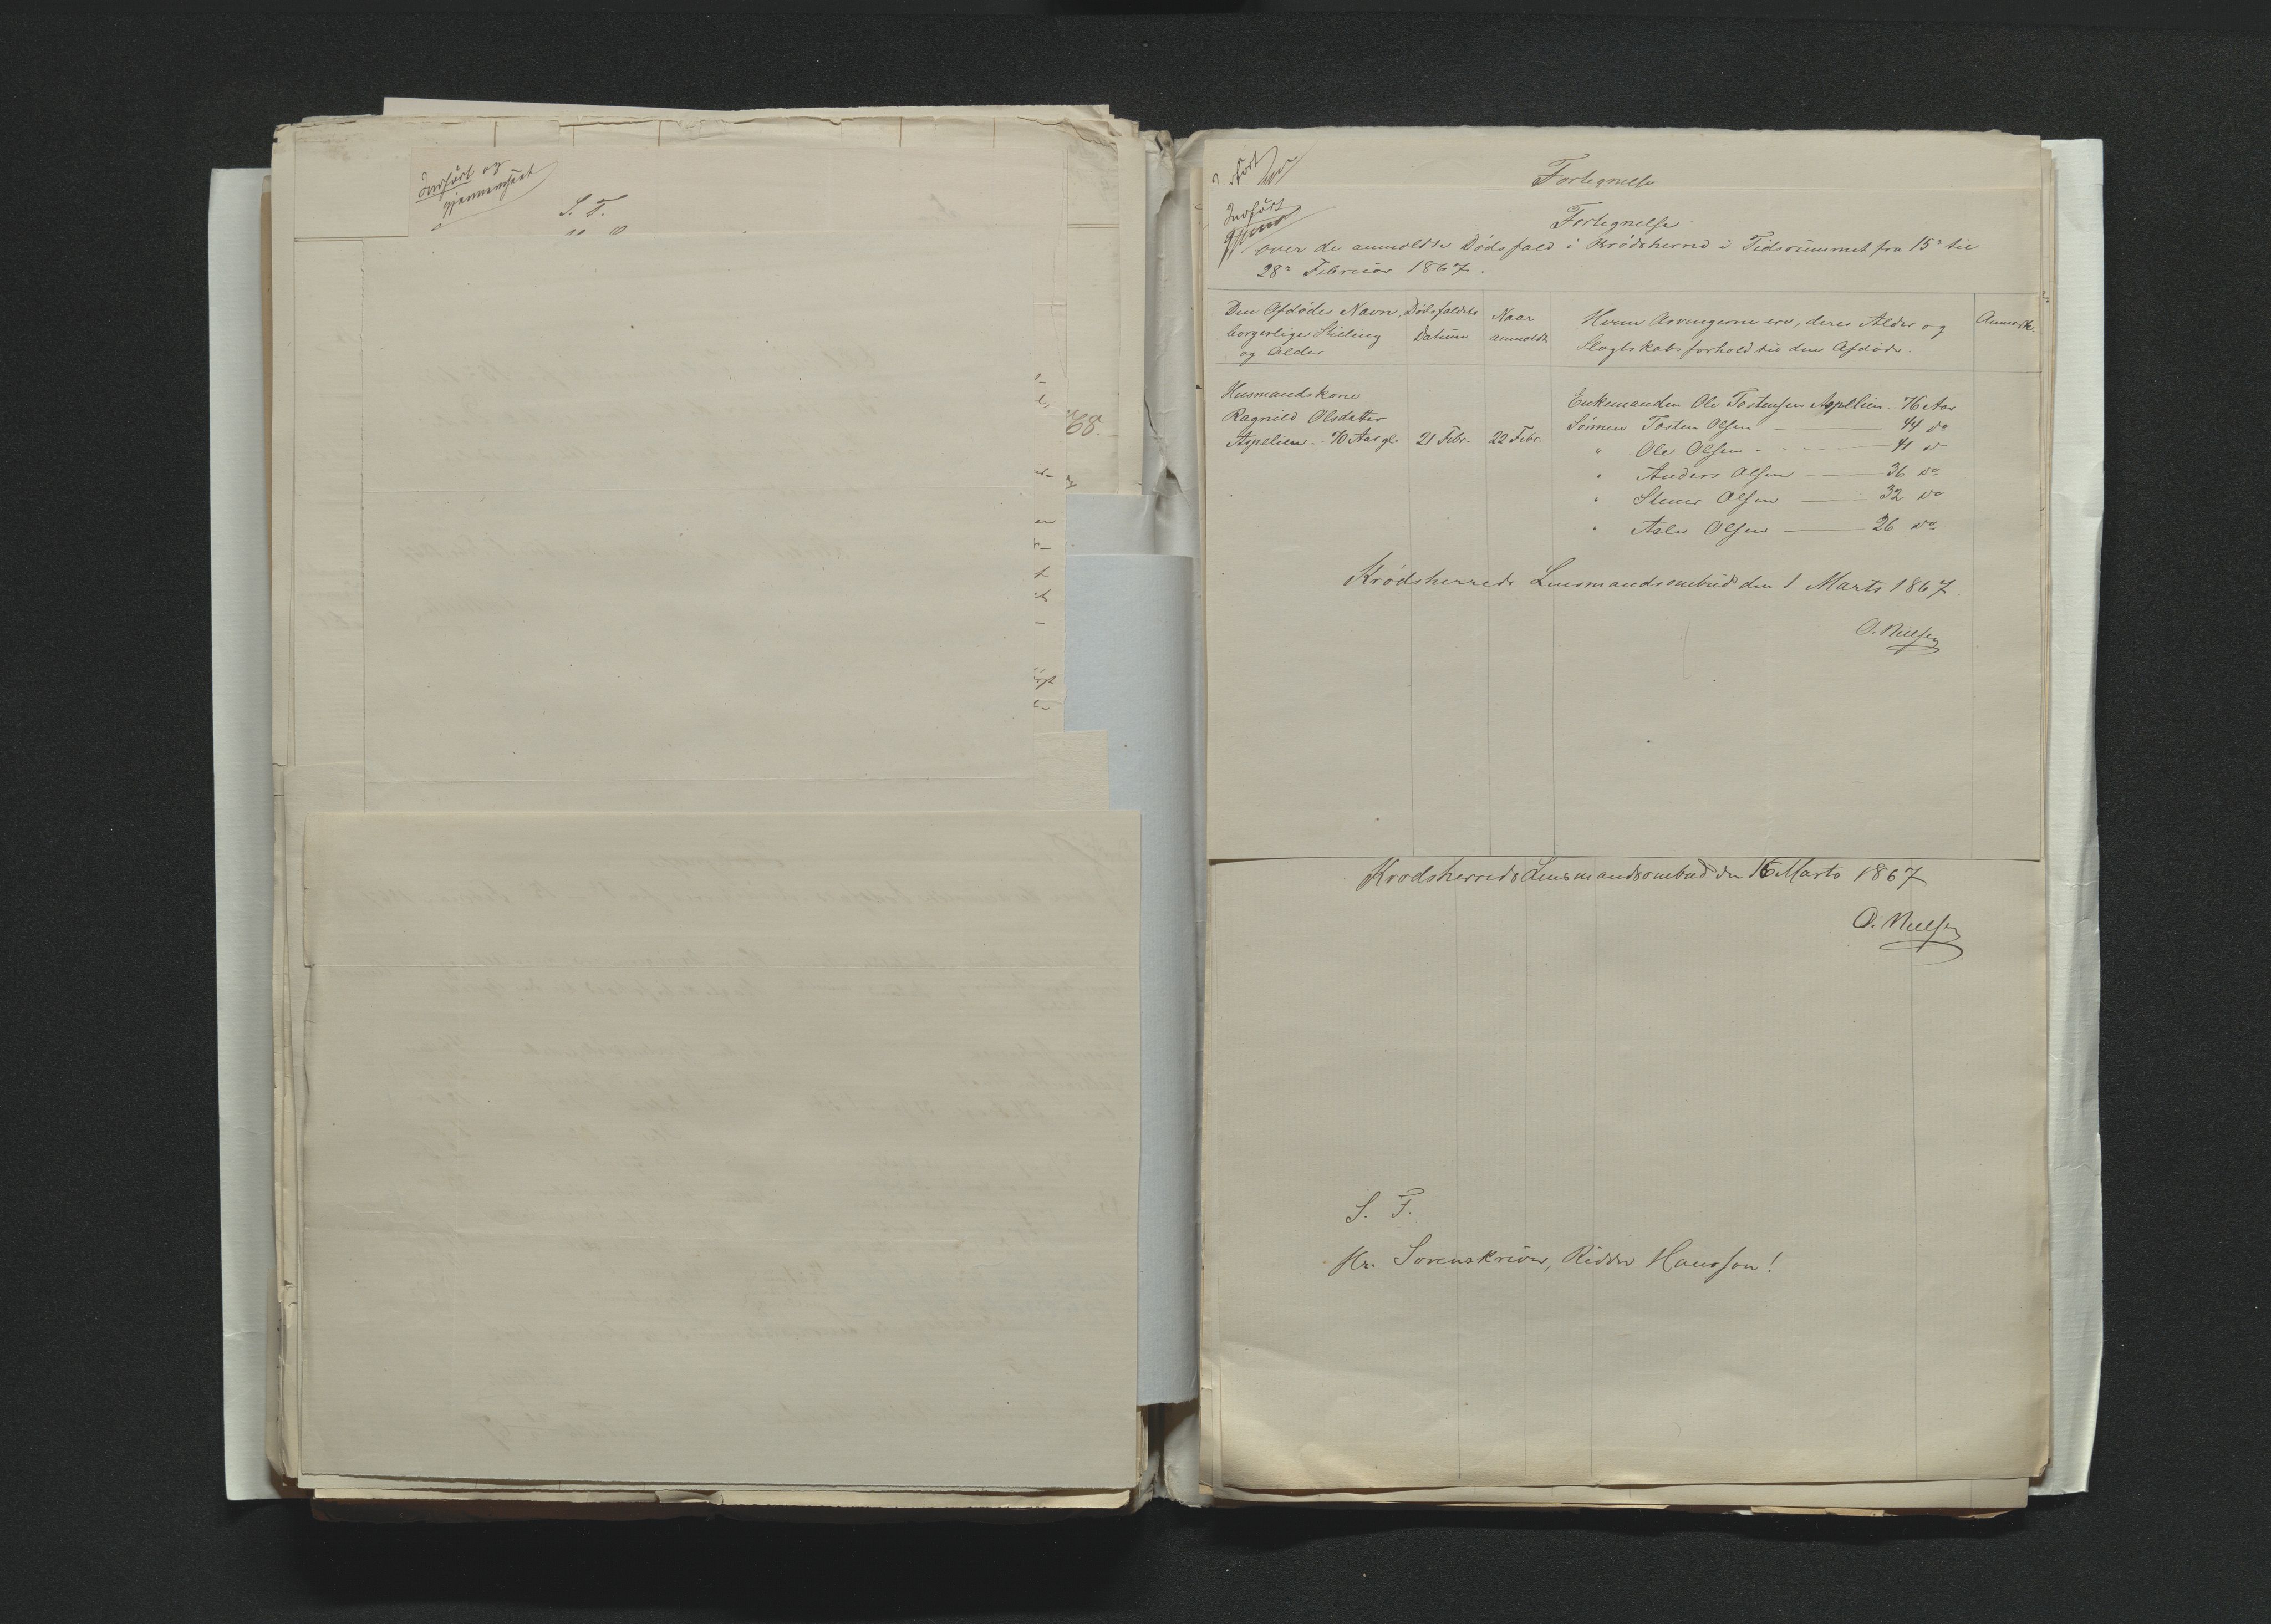 Indført og
gjennemseet
S. T.
68.
Fortegnelse
Indført
Fortegnelse
over de anmeldte Dødsfald i Krødsherred i Tidsrummet fra 15de til
28de Februar 1867.
Den Afdødes Navn, borgerlige Stilling og Alder
Dødsfaldets Datum
Naar anmeldt
Hvem Arvingerne ere, deres Alder og Slægtskabsforhold til den Afdøde.
Anmærk.
Husmandskone
Ragnild Olsdatter
Aspelien - 70 Aar gl. 21 Febr. 22 Febr.
Enkemanden Ole Tostensen Aspelien - 76 Aar
Sønnen Tosten Olsen - 44 do
" Ole Olsen - 41 do
" Anders Olsen - 36 do
" Stener Olsen - 32 do
" Asle Olsen - 26 do
Krødsherreds Lensmandsombud den 1 Marts 1867.
O. Nielsen
Krødsherreds Lensmandsombud den 16 Marts 1867
O. Nielsen
S. T.
Hr. Sorenskriver, Ridder Hansson!